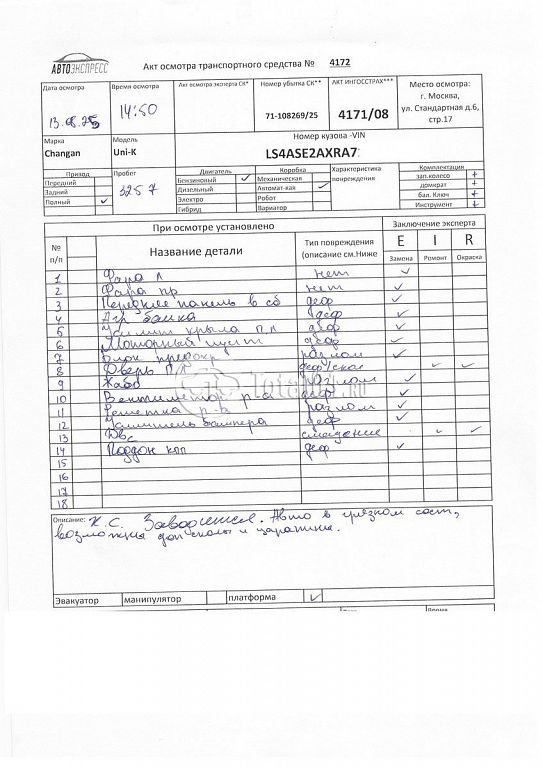 АВТОЭКСПРЕСС
Акт осмотра транспортного средства № 4172
Дата осмотра
13.08.25
Время осмотра
14:50
Акт осмотра эксперта СК*
Номер убытка СК**
71-108269/25
АКТ ИНГОССТРАХ***
4171/08
Место осмотра:
г. Москва,
ул. Стандартная д.6,
стр.17
Марка
Changan
Модель
Uni-K
Номер кузова -VIN
LS4ASE2AXRA7
Привод
Передний
Задний
Полный ✓
Пробег
3257
Двигатель
Бензиновый ✓
Дизельный
Электро
Гибрид
Коробка
Механическая
Автомат-кая ✓
Робот
Вариатор
Характеристика
повреждения
Комплектация
зап.колесо +
домкрат +
бал. Ключ +
Инструмент +
При осмотре установлено
Заключение эксперта
№
п/п
Название детали
Тип повреждения
(описание см.Ниже
E I R
Замена Ремонт Окраска
1 Фара Л нет ✓
2 Фара пр нет ✓
3 Передняя панель в сб деф ✓
4 деф ✓
5 Усилит крыла П Л деф ✓
6 Моторный щит деф ✓
7 Блок предохр разлом ✓
8 Дверь П Л ✓ ✓
9 Жабо разлом ✓
10 Вентилятор р-а деф ✓
11 Решетка р-а разлом ✓
12 Усилитель бампера деф ✓
13 ДВС смещение ✓ ✓
14 Поддон кпп деф ✓
15
16
17
18
TotalAuto.RU
Описание: К.С. Заводится. Авто в грязном сост,
возможны доп сколы и царапины.
Эвакуатор манипулятор платформа ✓